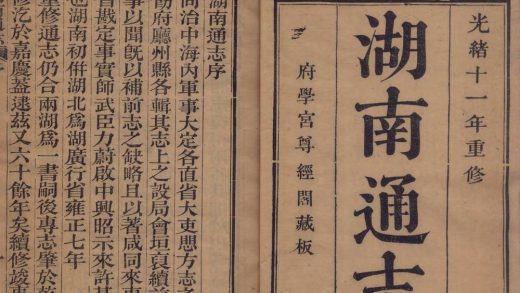 光緒十一年重修
湖南通志
府學宮尊經閣藏板
湖南通志序
同治中海內軍事大定各直省大吏思方志之
勸府廳州縣各輯其志上之設局會垣賡續前
事以聞旣以補前志之缺略且以著咸同來
省戡定事實師武臣力蔚啟中興昭示來許甚
也湖南初併湖北爲湖廣行省雍正七年
重修通志仍合兩湖爲一書嗣後專志肇於乾
修汔於嘉慶葢逮茲又六十餘年矣續修竣事